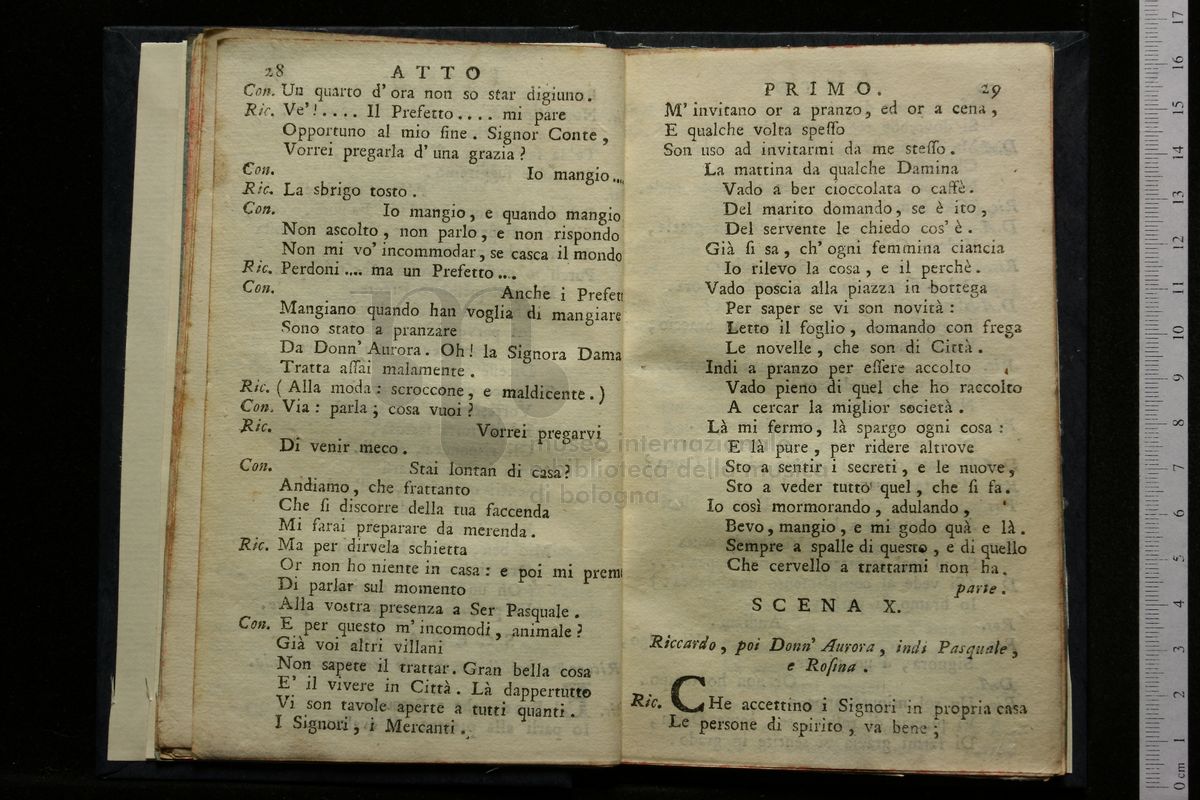 28 ATTO
Con. Un quarto d'ora non so star digiuno.
Ric. Ve'!.... Il Prefetto.... mi pare
Opportuno al mio fine. Signor Conte,
Vorrei pregarla d'una grazia?
Con. Io mangio...
Ric. La sbrigo tosto.
Con. Io mangio, e quando mangio
Non ascolto, non parlo, e non rispondo
Non mi vo' incommodar, se casca il mondo
Ric. Perdoni.... ma un Prefetto....
Con. Anche i Prefet
Mangiano quando han voglia di mangiare
Sono stato a pranzare
Da Donn' Aurora. Oh! la Signora Dama
Tratta aſſai malamente.
Ric. (Alla moda: scroccone, e maldicente.)
Con. Via: parla; cosa vuoi?
Ric. Vorrei pregarvi
Di venir meco.
Con. Stai lontan di casa?
Andiamo, che frattanto
Che ſi discorre della tua faccenda
Mi farai preparare da merenda.
Ric. Ma per dirvela schietta
Or non ho niente in casa: e poi mi prem
Di parlar sul momento
Alla vostra presenza a Ser Pasquale.
Con. E per questo m'incomodi, animale?
Già voi altri villani
Non sapete il trattar. Gran bella cosa
E' il vivere in Città. Là dappertutto
Vi son tavole aperte a tutti quanti.
I Signori, i Mercanti.
PRIMO. 29
M'invitano or a pranzo, ed or a cena,
E qualche volta speſſo
Son uso ad invitarmi da me steſſo.
La mattina da qualche Damina
Vado a ber cioccolata o caffè.
Del marito domando, se è ito,
Del servente le chiedo cos'è.
Già ſi sa, ch'ogni femmina ciancia
Io rilevo la cosa, e il perchè.
Vado poscia alla piazza in bottega
Per saper se vi son novità:
Letto il foglio, domando con frega
Le novelle, che son di Città.
Indi a pranzo per eſſere accolto
Vado pieno di quel che ho raccolto
A cercar la miglior società.
Là mi fermo, là spargo ogni cosa:
E là pure, per ridere altrove
Sto a sentir i secreti, e le nuove,
Sto a veder tutto quel, che ſi fa.
Io così mormorando, adulando,
Bevo, mangio, e mi godo quà e là.
Sempre a spalle di questo, e di quello
Che cervello a trattarmi non ha.
parte.
SCENA X.
Riccardo, poi Donn' Aurora, indi Pasquale,
e Roſina.
Ric. CHe accettino i Signori in propria casa
Le persone di spirito, va bene;
museo internazionale
biblioteca della musica
di bologna
0 cm 1 2 3 4 5 6 7 8 9 10 11 12 13 14 15 16 17